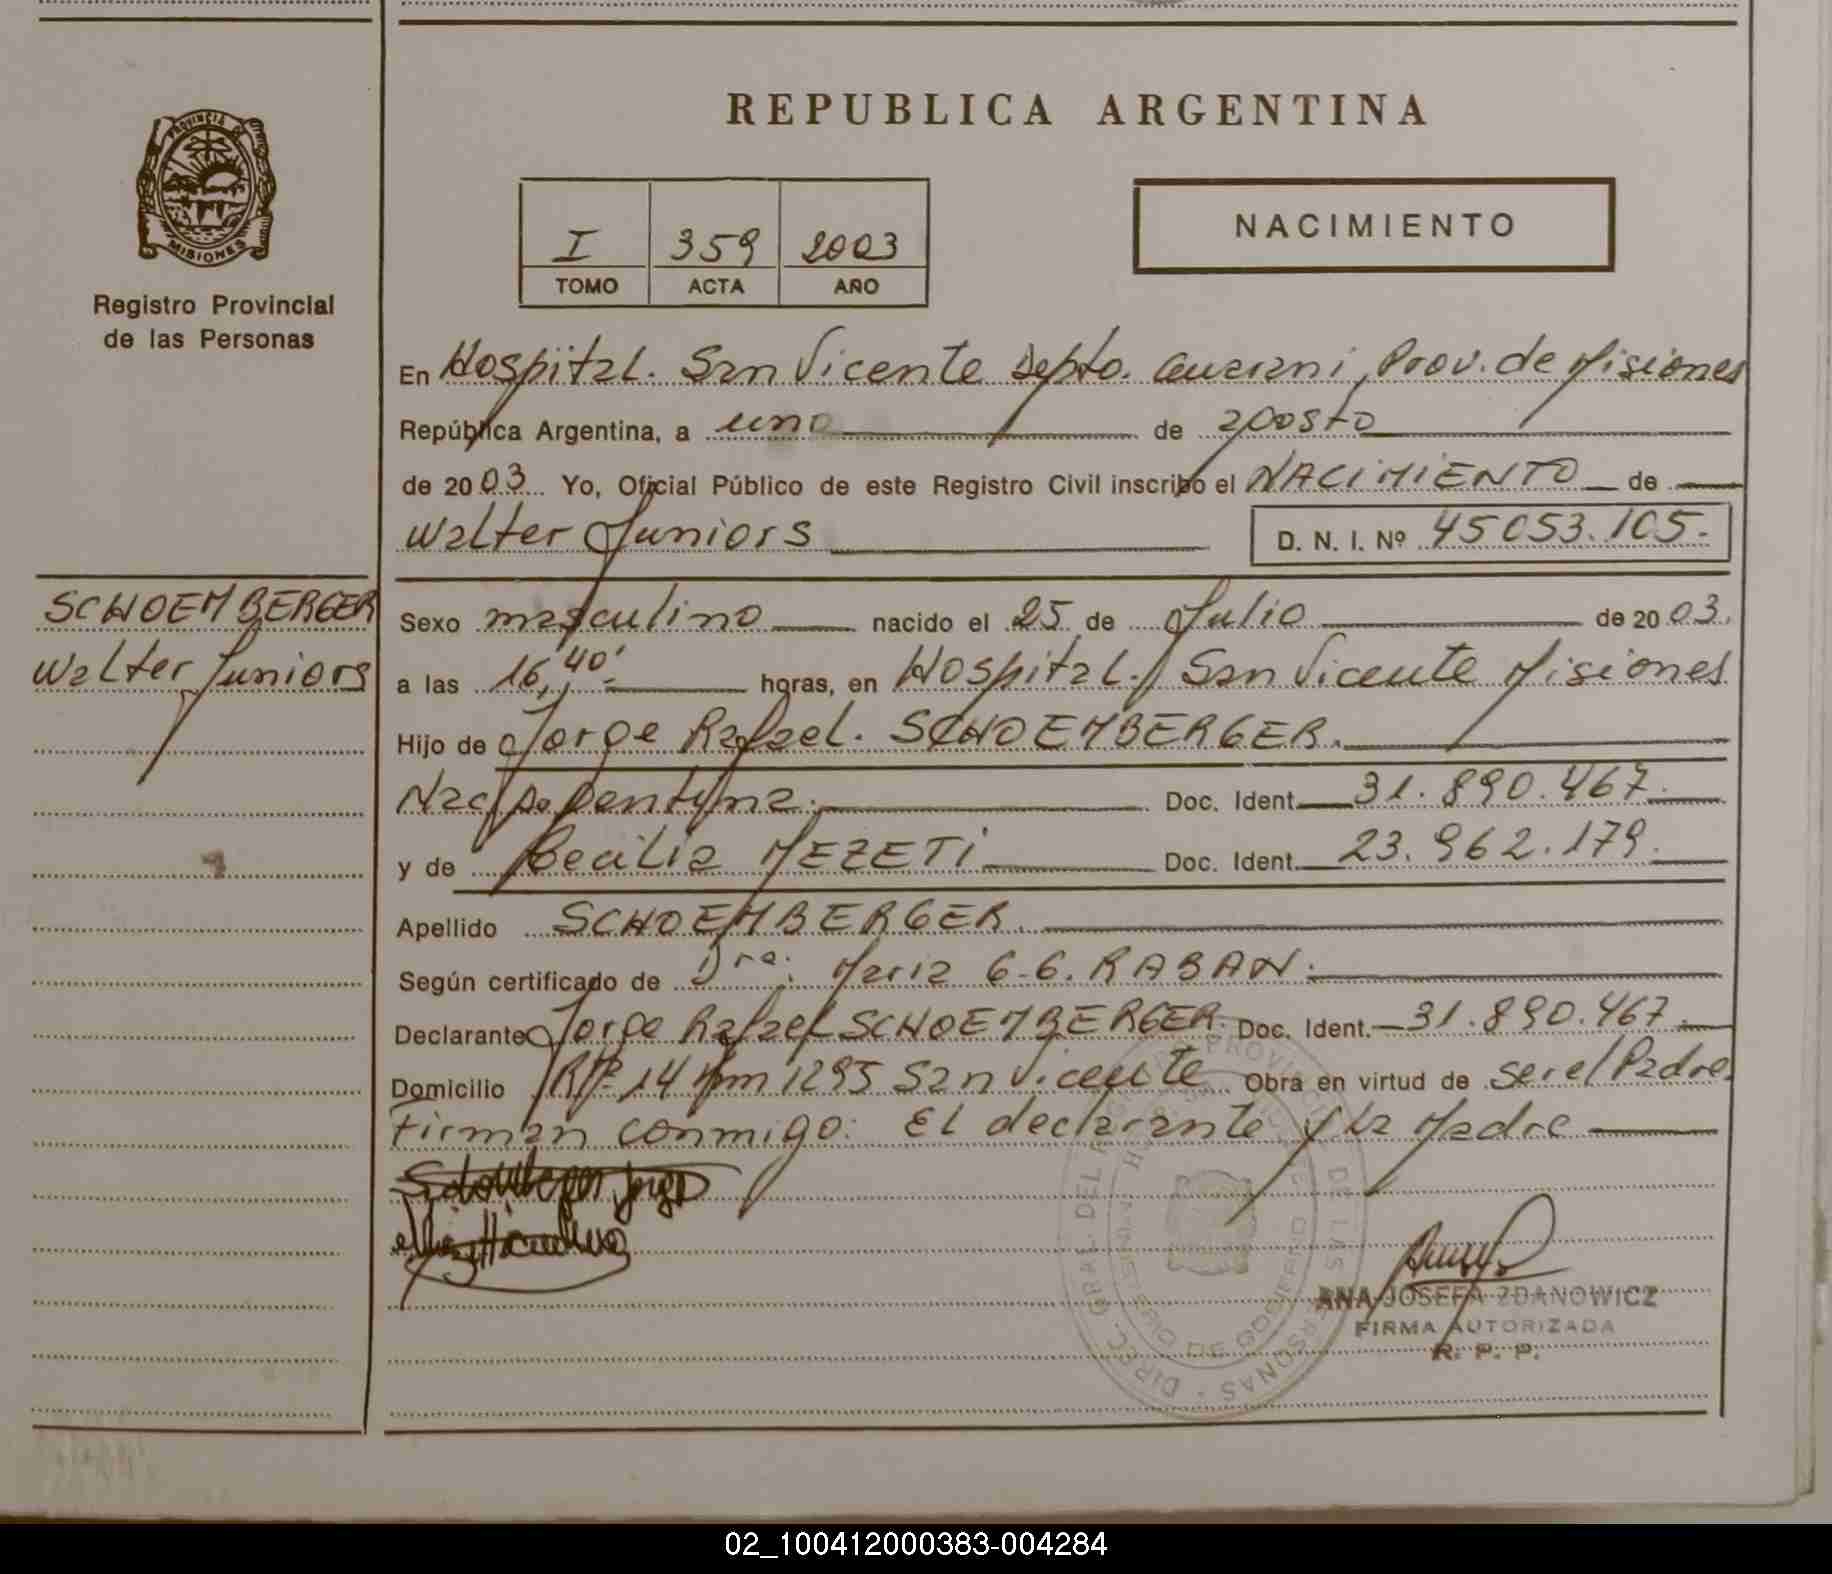 REPUBLICA ARGENTINA
PROVINCIA DE
MISIONES
Registro Provincial
de las Personas
I 359 2003
TOMO ACTA AÑO
NACIMIENTO
En Hospital. San Vicente Depto. Guarani, Prov. de Misiones
República Argentina, a uno de agosto
de 2003 Yo, Oficial Público de este Registro Civil inscribo el NACIMIENTO de
Walter Juniors D. N. I. Nº 45053.105.
SCHOEMBERGER
Walter Juniors
Sexo masculino nacido el 25 de Julio de 2003.
a las 16,40' horas, en Hospital. San Vicente Misiones
Hijo de Jorge Rafael. SCHOEMBERGER.
Nac. Argentina. Doc. Ident. 31.890.467.
y de Cecilia MEZETI Doc. Ident. 23.962.179.
Apellido SCHOEMBERGER.
Según certificado de Dra. Maria G. G. RABAN.
Declarante Jorge Rafael SCHOEMBERGER. Doc. Ident. 31.890.467.
Domicilio 14 Km 1295 San Vicente Obra en virtud de ser el Padre.
Firman conmigo: El declarante y la Madre
ANA JOSEFA ZDANOWICZ
FIRMA AUTORIZADA
R. P. P.
02_100412000383-004284